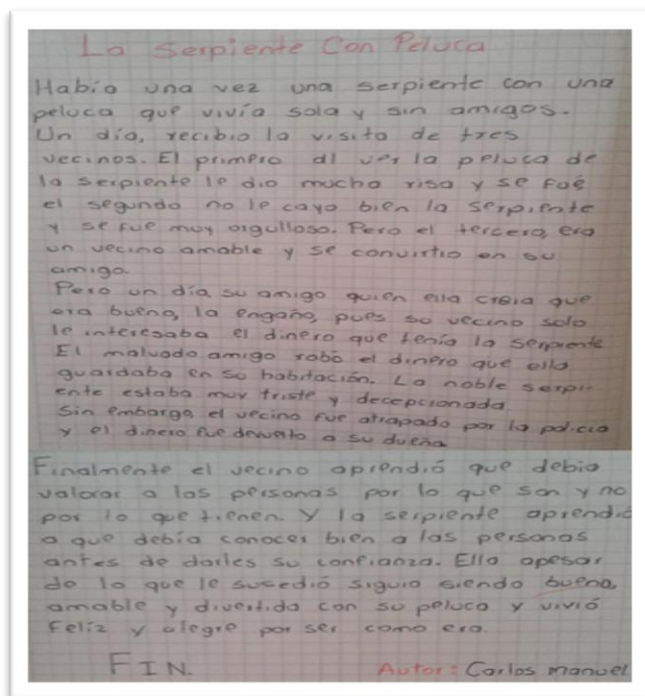 La Serpiente Con Peluca
Habia una vez una serpiente con una
peluca que vivía sola y sin amigos.
Un día, recibio la visita de tres
vecinos. El primero al ver la peluca de
la serpiente le dio mucha risa y se fué
el segundo no le cayo bien la serpiente
y se fue muy orgulloso. Pero el tercero, era
un vecino amable y se convirtio en su
amigo.
Pero un día, su amigo quien ella creia que
era bueno, la engaño, pues su vecino solo
le interesaba el dinero que tenía la serpiente
El malvado amigo robó el dinero que ella
guardaba en su habitación. La noble serpi-
ente estaba muy triste y decepcionada.
Sin embargo el vecino fue atrapado por la policia
y el dinero fue devuelto a su dueña
Finalmente el vecino aprendió que debia
valorar a las personas por lo que son y no
por lo que tienen. Y la serpiente aprendió
a que debía conocer bien a las personas
antes de darles su confianza. Ella apesar
de lo que le sucedió siguio siendo buena,
amable y divertida con su peluca y vivió
Feliz y alegre por ser como era.
FIN.
Autor: Carlos manuel